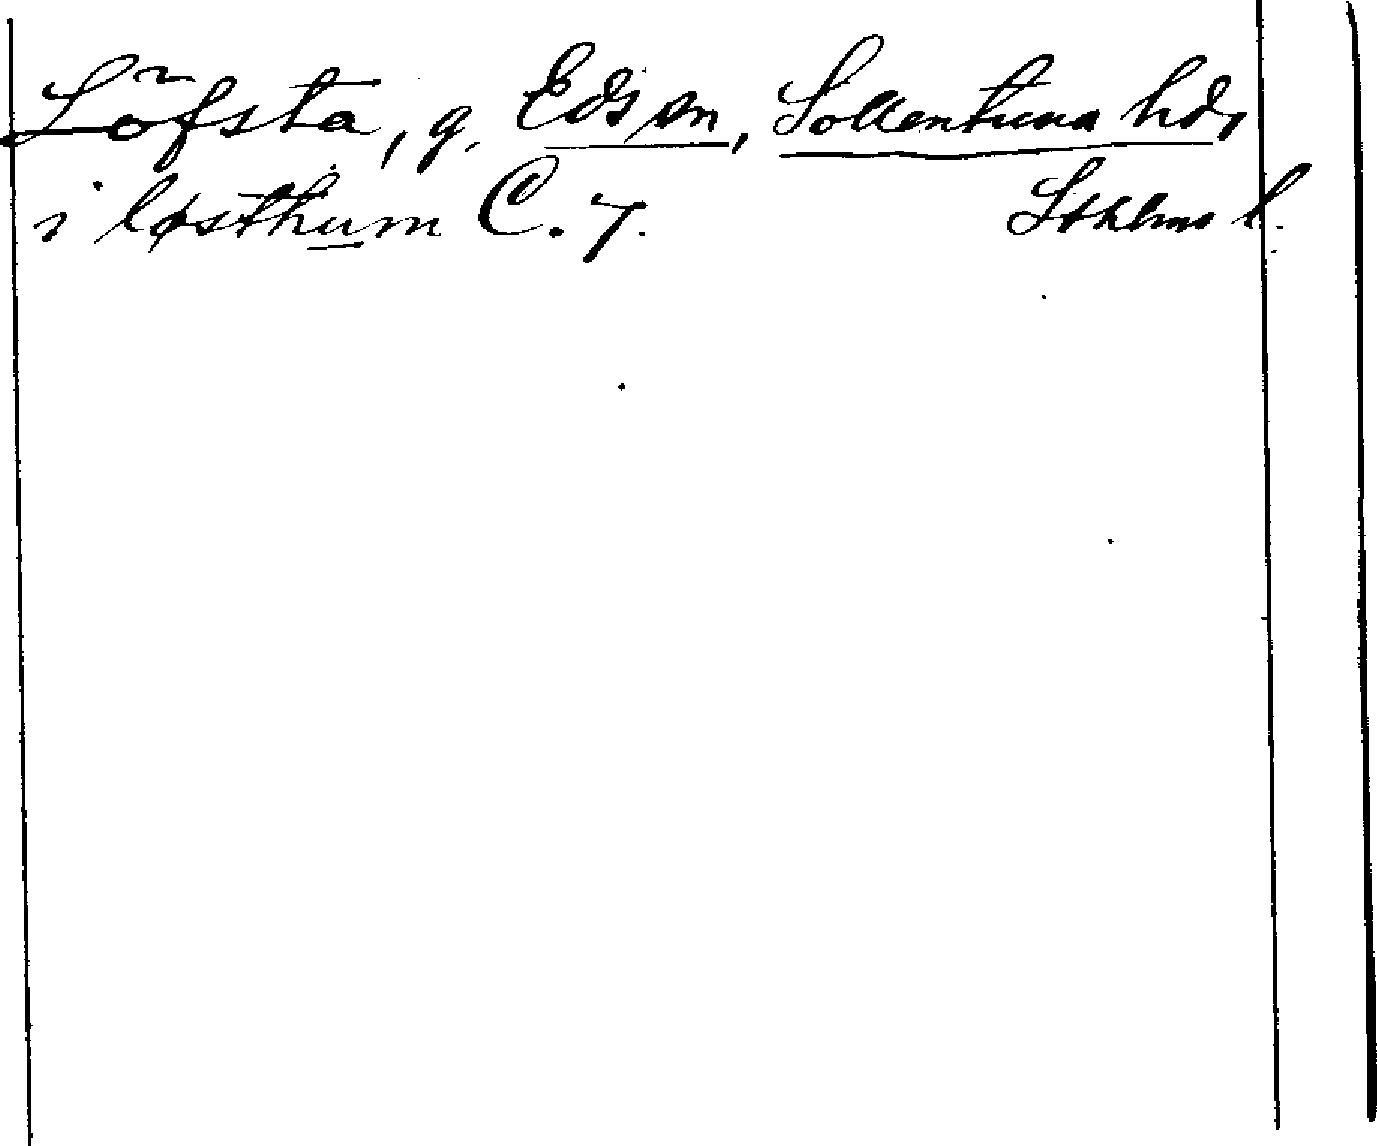 Löfsta, g. Eds sn, Sollentuna hd,
i løsthum C. 7. Sthlms l.